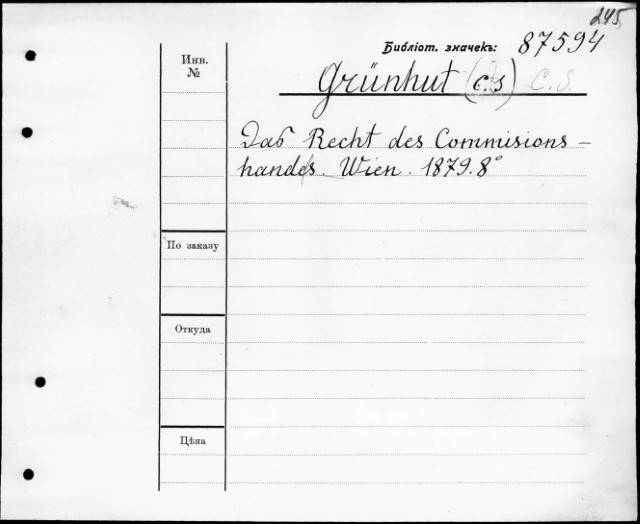 245
Библіот. значекъ: 87594
Инв.
№
Grünhut (C.S) C. S.
Das Recht des Commisions-
handels. Wien. 1879. 8°
По заказу
Откуда
Цѣна